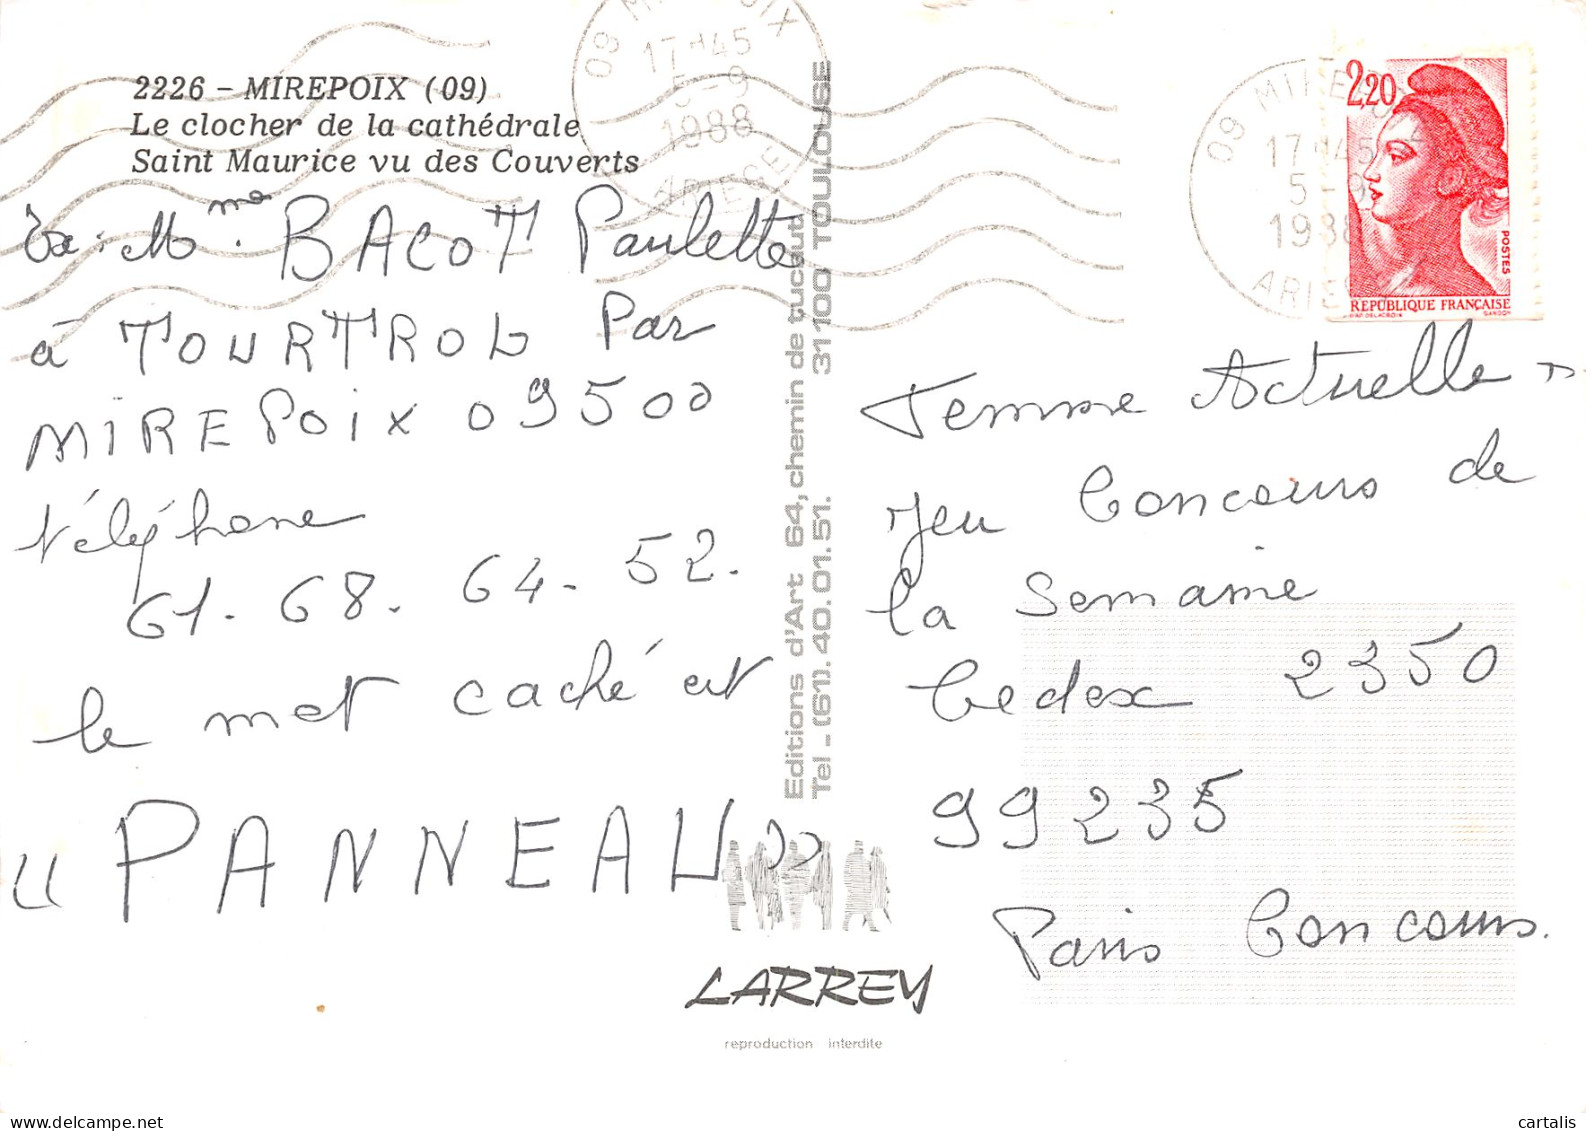 2226 - MIREPOIX (09)
Le clocher de la cathédrale
Saint Maurice vu des Couverts
09 MIREPOIX
17H45
5-9
1988
ARIEGE
Mme BACOT Paulette
à TOURTROL Par
MIREPOIX 09500
téléphone
61-68-64-52.
le mot caché est
" PANNEAU "
Editions d'Art 64, chemin de tucaut
31100 TOULOUSE
Tel - (61). 40.01.51.
LARREY
reproduction interdite
09 MIREPO
17H45
5-9
1988
ARIE
2,20
POSTES
RÉPUBLIQUE FRANÇAISE
D'AP. DELACROIX
GANDON
Femme Actuelle
Jeu Concours de
la Semaine
Cedex 2350
99235
Paris Concours.
cartalis